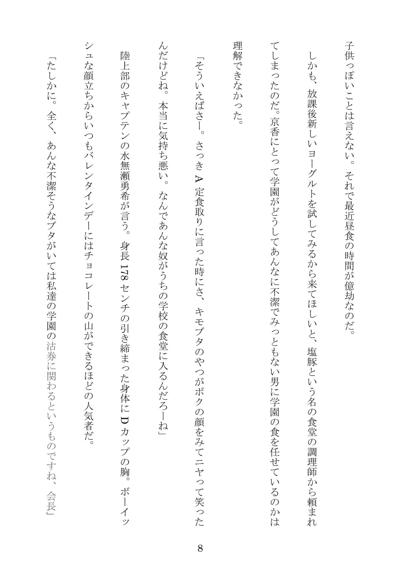 子供っぽいことは言えない。それで最近昼食の時間が億劫なのだ。
しかも、放課後新しいヨーグルトを試してみるから来てほしいと、塩豚という名の食堂の調理師から頼まれ
てしまったのだ。京香にとって学園がどうしてあんなに不潔でみっともない男に学園の食を任せているのかは
理解できなかった。
「そういえばさー。さっき A 定食取りに言った時にさ、キモブタのやつがボクの顔をみてニヤって笑った
んだけどね。本当に気持ち悪い。なんであんな奴がうちの学校の食堂に入るんだろーね」
陸上部のキャプテンの水無瀬勇希が言う。身長 178 センチの引き締まった身体に D カップの胸。ボーイッ
シュな顔立ちからいつもバレンタインデーにはチョコレートの山ができるほどの人気者だ。
「たしかに。全く、あんな不潔そうなブタがいては私達の学園の沽券に関わるというものですね、会長」
8